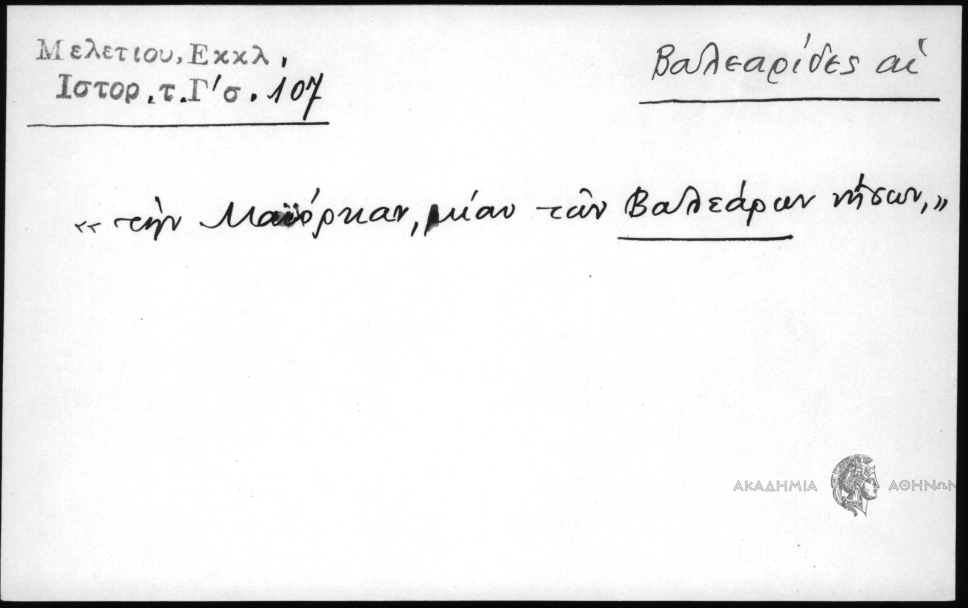 Μελετιου, Εκκλ.
Ιστορ. τ. Γ' σ. 107
Βαλεαρίδες αἱ
«τὴν Μαϊόρκαν, μίαν τῶν Βαλεάρων νήσων,»
ΑΚΑΔΗΜΙΑ ΑΘΗΝΩΝ